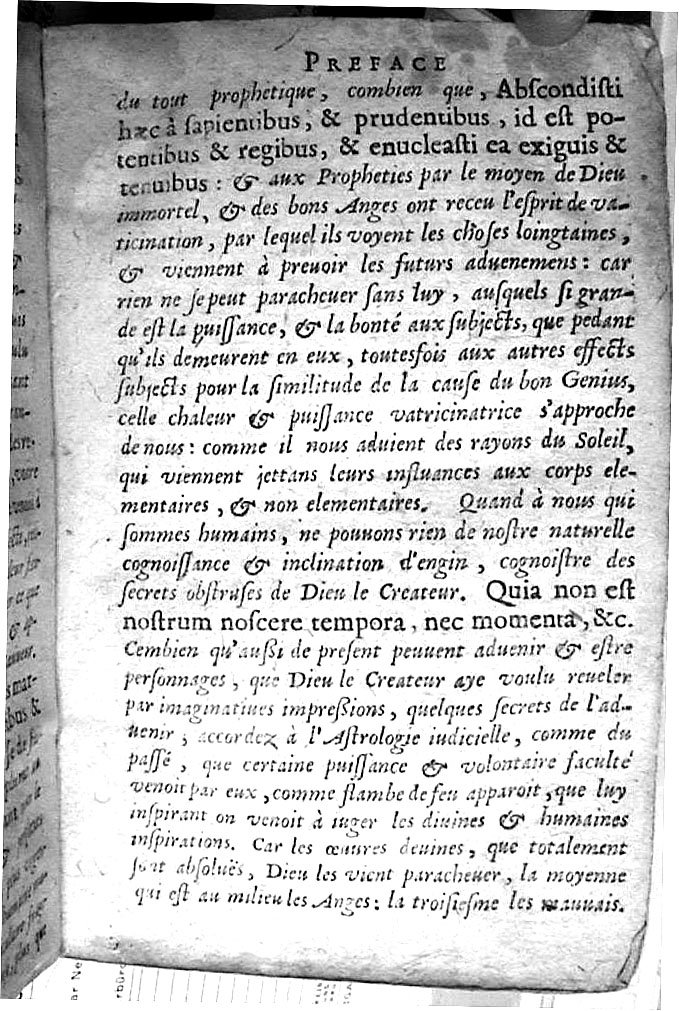 PREFACE
du tout prophetique, combien que, Abſcondiſti
hæc à ſapientibus, & prudentibus, id eſt po-
tentibus & regibus, & enucleaſti ea exiguis &
tenuibus : & aux Propheties par le moyen de Dieu
immortel, & des bons Anges ont receu l'eſprit de va-
ticination, par lequel ils voyent les choſes loingtaines,
& viennent à preuoir les futurs aduenemens : car
rien ne ſe peut paracheuer ſans luy, auſquels ſi gran-
de eſt la puiſſance, & la bonté aux ſubjects, que pedant
qu'ils demeurent en eux, toutesfois aux autres effects
ſubjects pour la ſimilitude de la cauſe du bon Genius,
celle chaleur & puiſſance vatricinatrice s'approche
de nous : comme il nous aduient des rayons du Soleil,
qui viennent jettans leurs influances aux corps ele-
mentaires, & non elementaires. Quand à nous qui
ſommes humains, ne pouuons rien de noſtre naturelle
cognoiſſance & inclination d'engin, cognoiſtre des
ſecrets obſtruſes de Dieu le Createur. Quia non eſt
noſtrum noſcere tempora, nec momenta, &c.
Cembien qu'außi de preſent peuuent aduenir & eſtre
perſonnages, que Dieu le Createur aye voulu reueler
par imaginatiues impreßions, quelques ſecrets de l'ad-
uenir ; accordez à l'Aſtrologie iudicielle, comme du
paſſé, que certaine puiſſance & volontaire faculté
venoit par eux, comme flambe de feu apparoit, que luy
inſpirant on venoit à iuger les diuines & humaines
inſpirations. Car les œuures deuines, que totalement
ſont abſoluës, Dieu les vient paracheuer, la moyenne
qui eſt au milieu les Anges : la troiſieſme les mauuais.